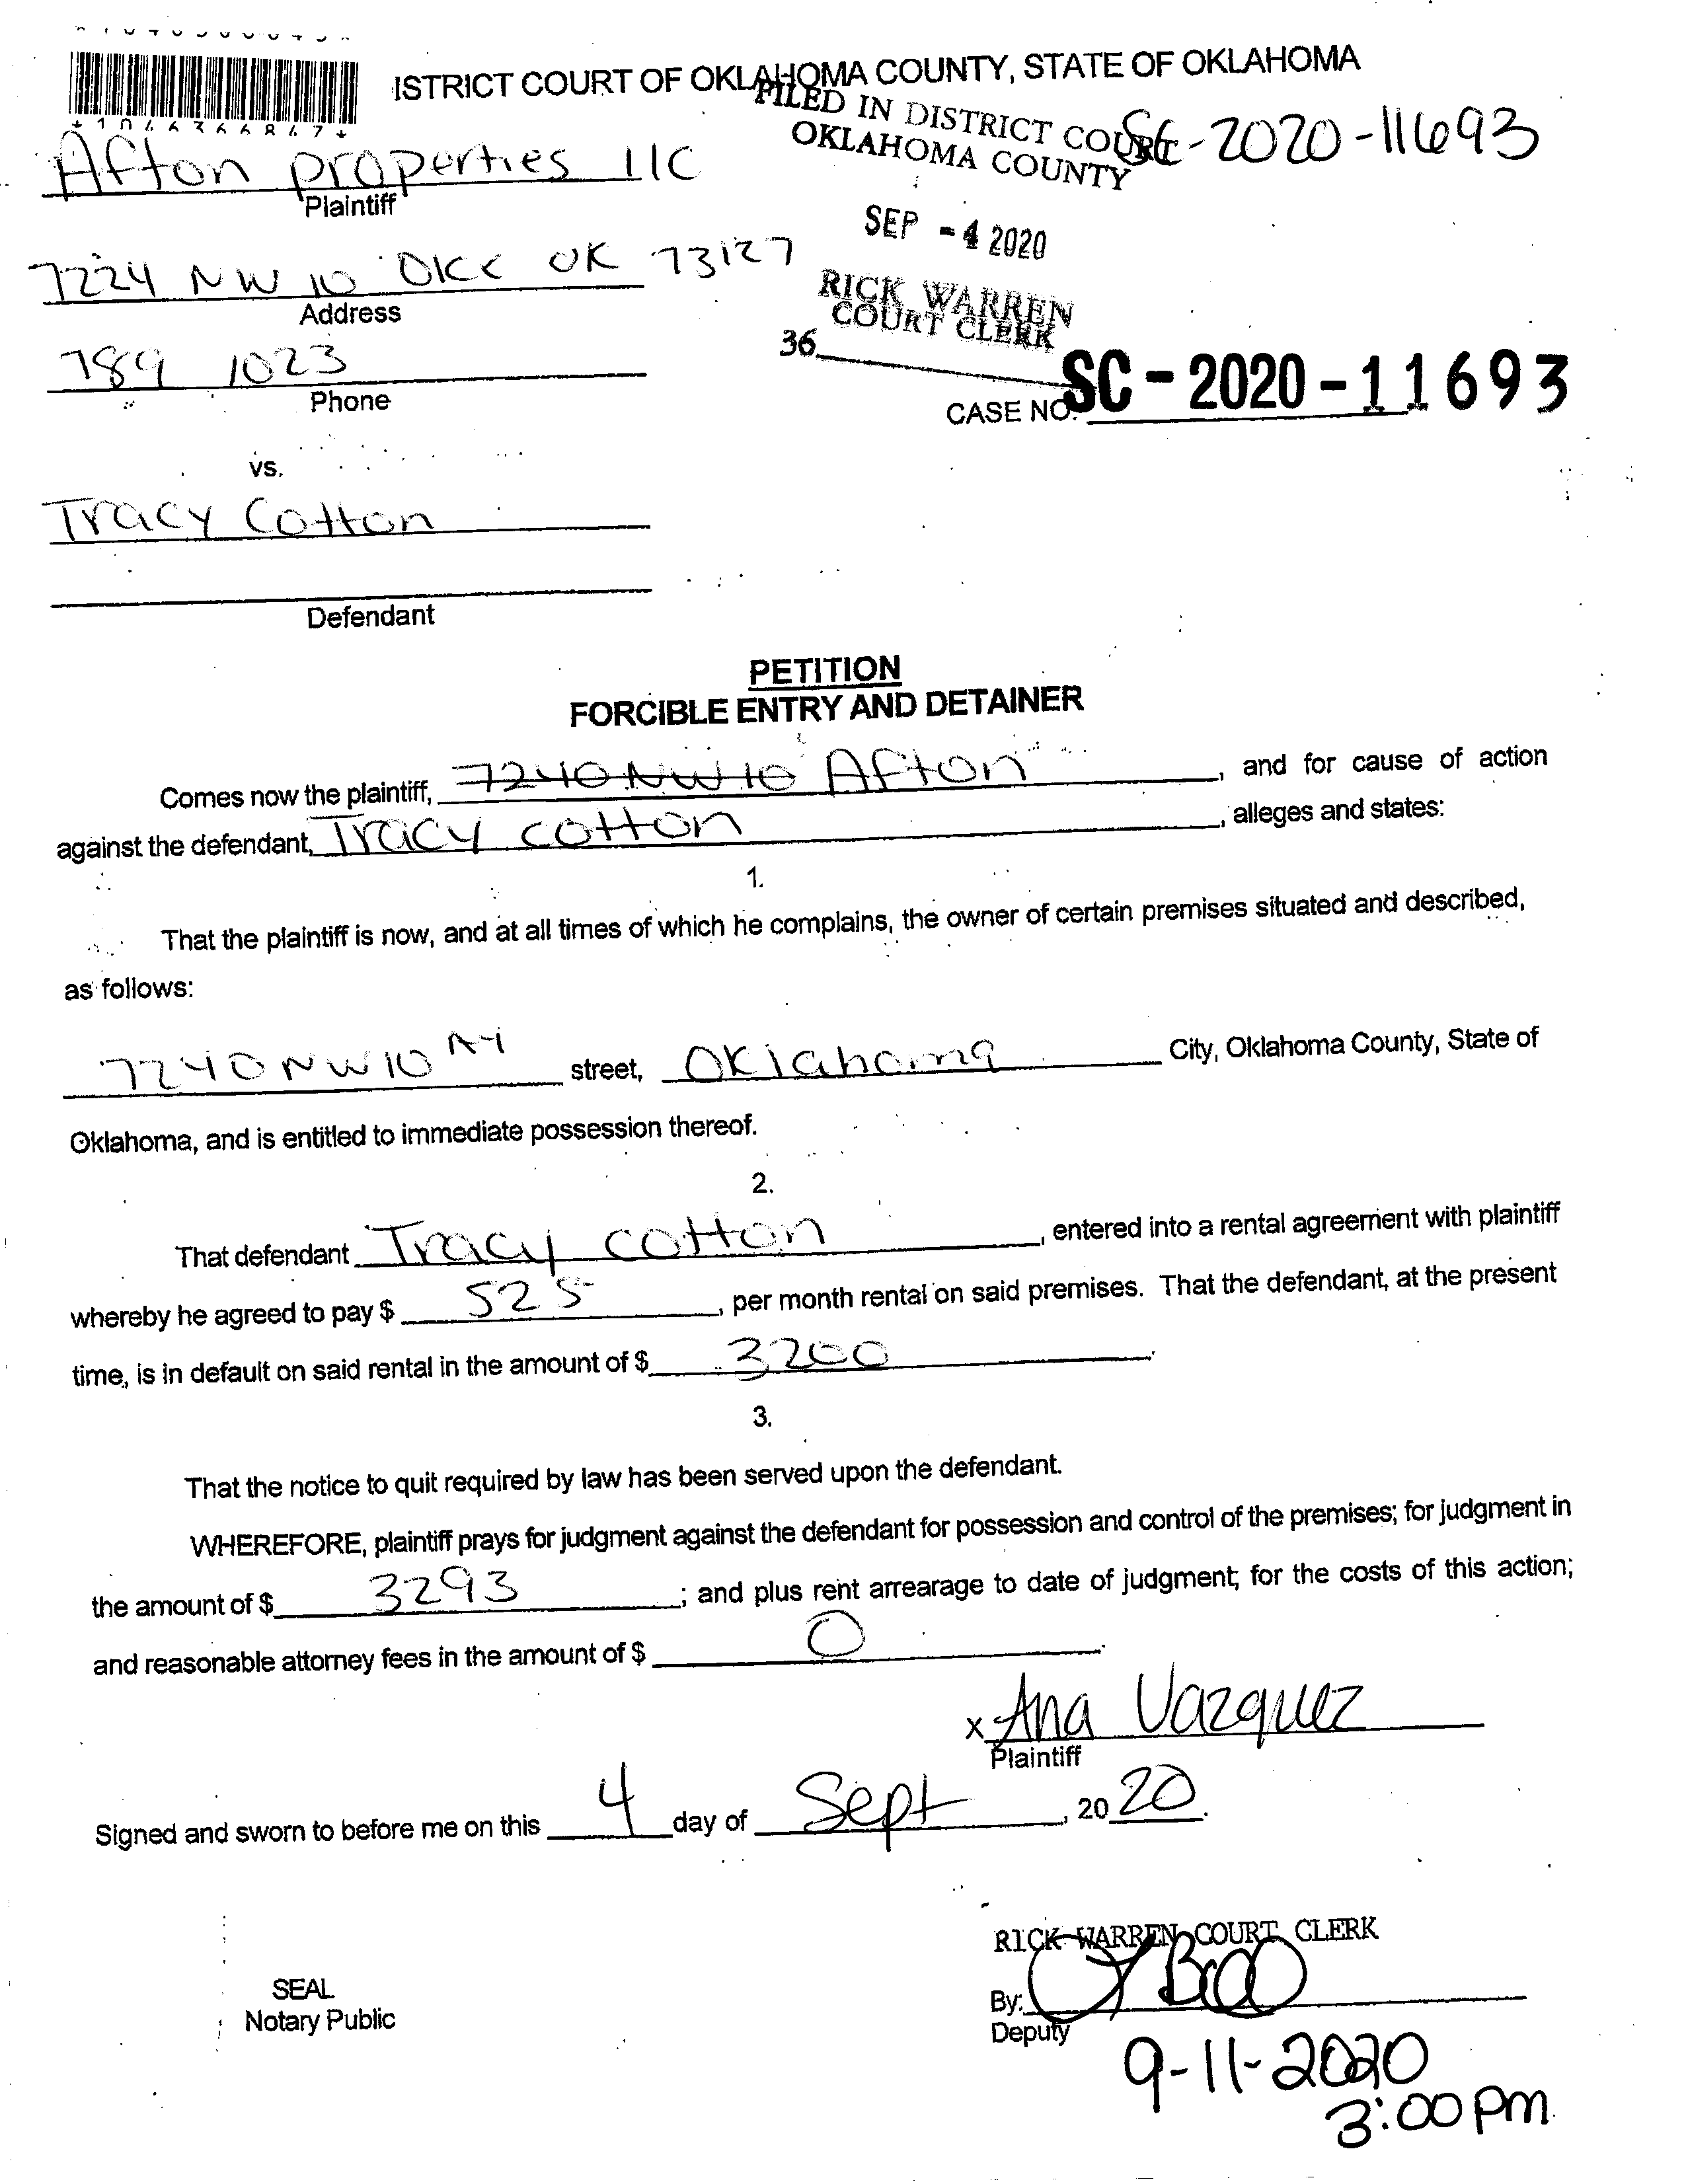 ISTRICT COURT OF OKLAHOMA COUNTY, STATE OF OKLAHOMA
FILED IN DISTRICT COURT
OKLAHOMA COUNTY
SC-2020-11693
*1046366867*
Afton properties llC
Plaintiff
SEP -4 2020
7224 NW 10 OKC OK 73127
Address
RICK WARREN
COURT CLERK
36
789 1023
Phone
CASE NO. SC-2020-11693
vs.
Tracy Cotton
Defendant
PETITION
FORCIBLE ENTRY AND DETAINER
Comes now the plaintiff, 7240 NW 10 Afton, and for cause of action
against the defendant, Tracy cotton, alleges and states:
1.
That the plaintiff is now, and at all times of which he complains, the owner of certain premises situated and described,
as follows:
7240 NW 10 street, Oklahoma City, Oklahoma County, State of
Oklahoma, and is entitled to immediate possession thereof.
2.
That defendant Tracy cotton, entered into a rental agreement with plaintiff
whereby he agreed to pay $ 525, per month rental on said premises. That the defendant, at the present
time, is in default on said rental in the amount of $ 3200.
3.
That the notice to quit required by law has been served upon the defendant.
WHEREFORE, plaintiff prays for judgment against the defendant for possession and control of the premises; for judgment in
the amount of $ 3293; and plus rent arrearage to date of judgment; for the costs of this action;
and reasonable attorney fees in the amount of $ 0.
x Ana Vazquez
Plaintiff
Signed and sworn to before me on this 4 day of Sept, 2020.
RICK WARREN COURT CLERK
SEAL
Notary Public
By:
Deputy
9-11-2020
3:00 pm